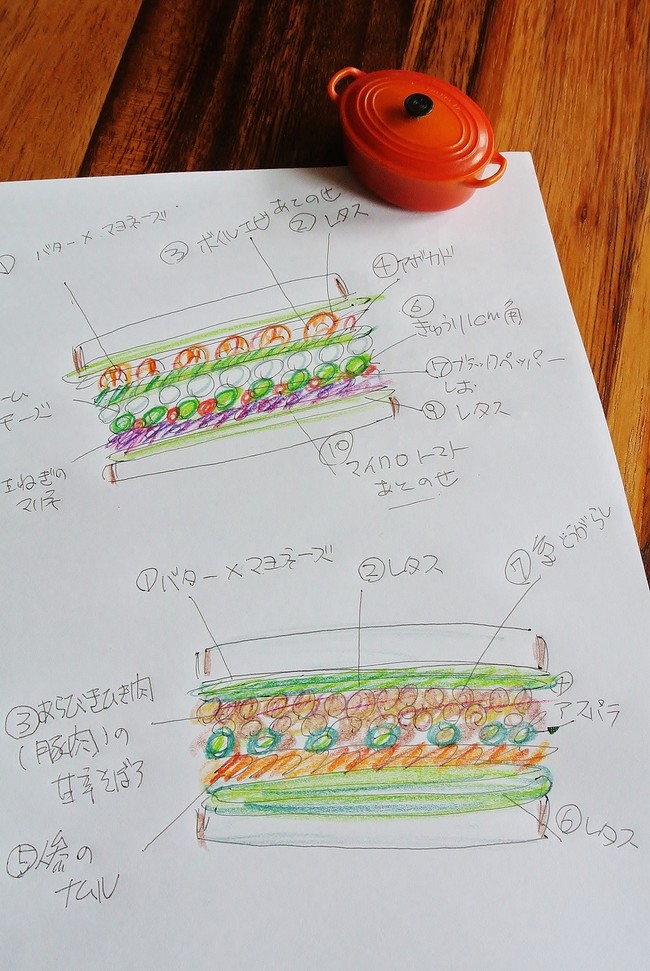 バター×マヨネーズ
③ボイルエビ あとのせ
②レタス
④アボカド
⑥
きゅうり1cm角
⑦ブラックペッパー
しお
ーム
チーズ
⑨レタス
玉ねぎの
マリネ
⑩
マイクロトマト
あとのせ
①バター×マヨネーズ
②レタス
⑦糸とうがらし
③あらびきひき肉
(豚肉)の
甘辛そぼろ
④
アスパラ
⑤人参の
ナムル
⑥レタス